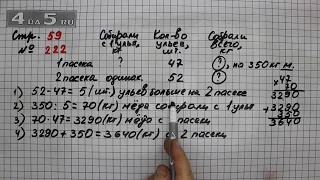 4DA5.RU
Стр. 59
№ 222
Собирали с 1 улья, кг
Кол-во ульев, шт.
Собрали всего, кг
1 пасека ? 47 ?
2 пасека одинак. 52 ? , на 350 кг м.
1) 52-47=5 (шт.) ульев больше на 2 пасеке
2) 350:5=70 (кг) мёда собирали с 1 улья
3) 70·47=3290 (кг) мёда с пасеки
4) 3290+350=3640 (кг) с 2 пасеки
×47
70
3290
+3290
350
3640